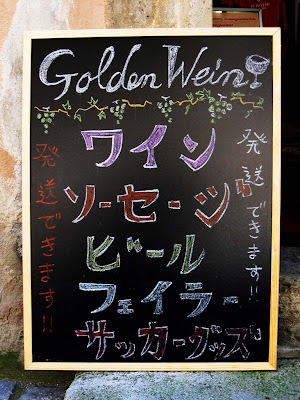 Golden Wein
ワイン
ソーセージ
ビール
フェイラー
サッカーグッズ
発送できます!!
発送できます!!